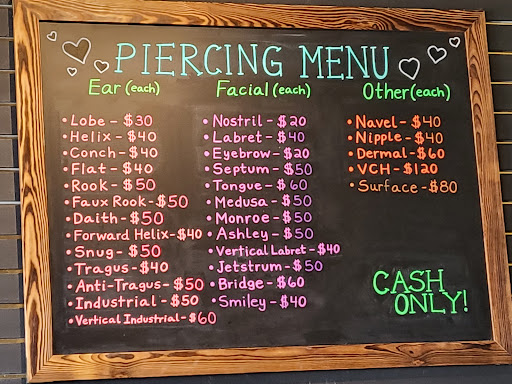 PIERCING MENU
Ear (each)
• Lobe - $30
• Helix - $40
• Conch - $40
• Flat - $40
• Rook - $50
• Faux Rook - $50
• Daith - $50
• Forward Helix - $40
• Snug - $50
• Tragus - $40
• Anti-Tragus - $50
• Industrial - $50
• Vertical Industrial - $60
Facial (each)
• Nostril - $20
• Labret - $40
• Eyebrow - $20
• Septum - $50
• Tongue - $60
• Medusa - $50
• Monroe - $50
• Ashley - $50
• Vertical Labret - $40
• Jetstrum - $50
• Bridge - $60
• Smiley - $40
Other (each)
• Navel - $40
• Nipple - $40
• Dermal - $60
• VCH - $120
• Surface - $80
CASH
ONLY!